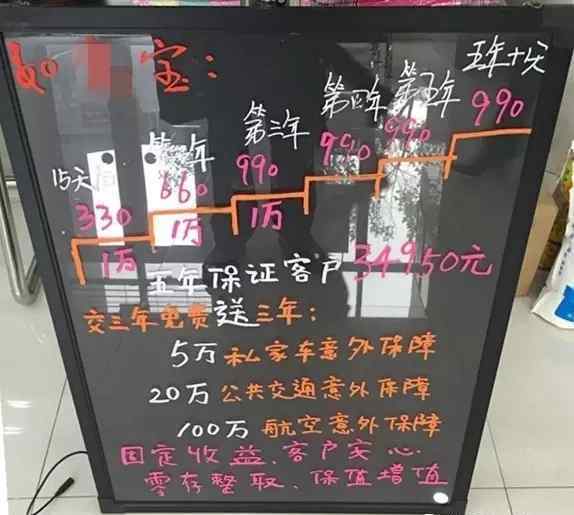 如 宝：
15天 第二年 第三年 第四年 第五年 五年十天
330 660 990 990 990 990
1万 1万 1万
五年保证客户34950元
交三年免费送三年：
5万 私家车意外保障
20万 公共交通意外保障
100万 航空意外保障
固定收益、客户安心
零存整取、保值增值